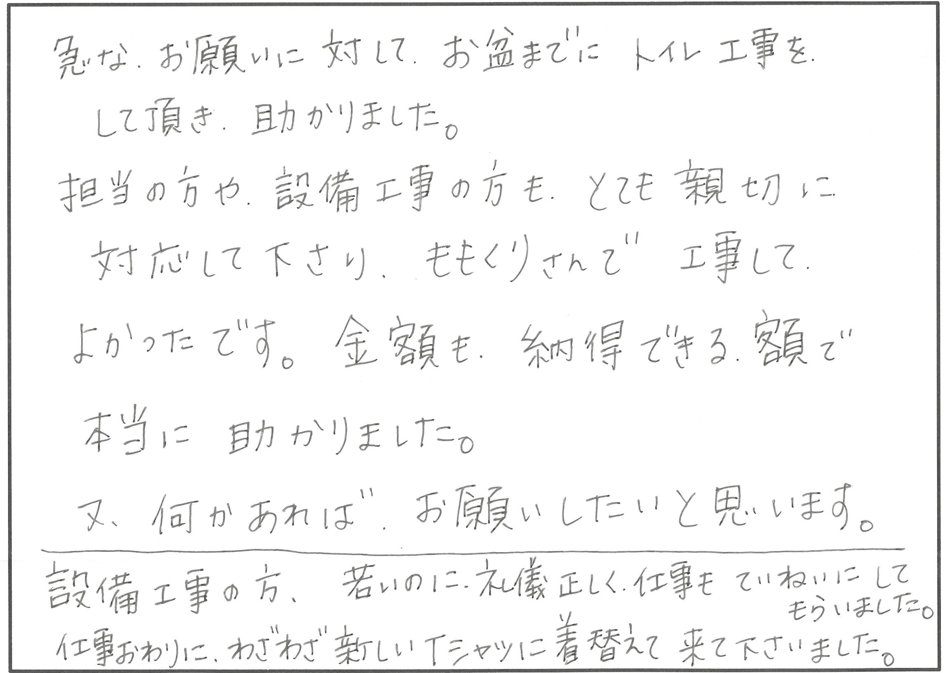 急な、お願いに対して、お盆までにトイレ工事を、
して頂き、助かりました。
担当の方や、設備工事の方も、とても親切に
対応して下さり、ももくりさんで工事して、
よかったです。金額も、納得できる、額で
本当に助かりました。
又、何かあれば、お願いしたいと思います。
設備工事の方、若いのに、礼儀正しく、仕事もていねいにして
もらいました。
仕事おわりに、わざわざ新しいTシャツに着替えて来て下さいました。